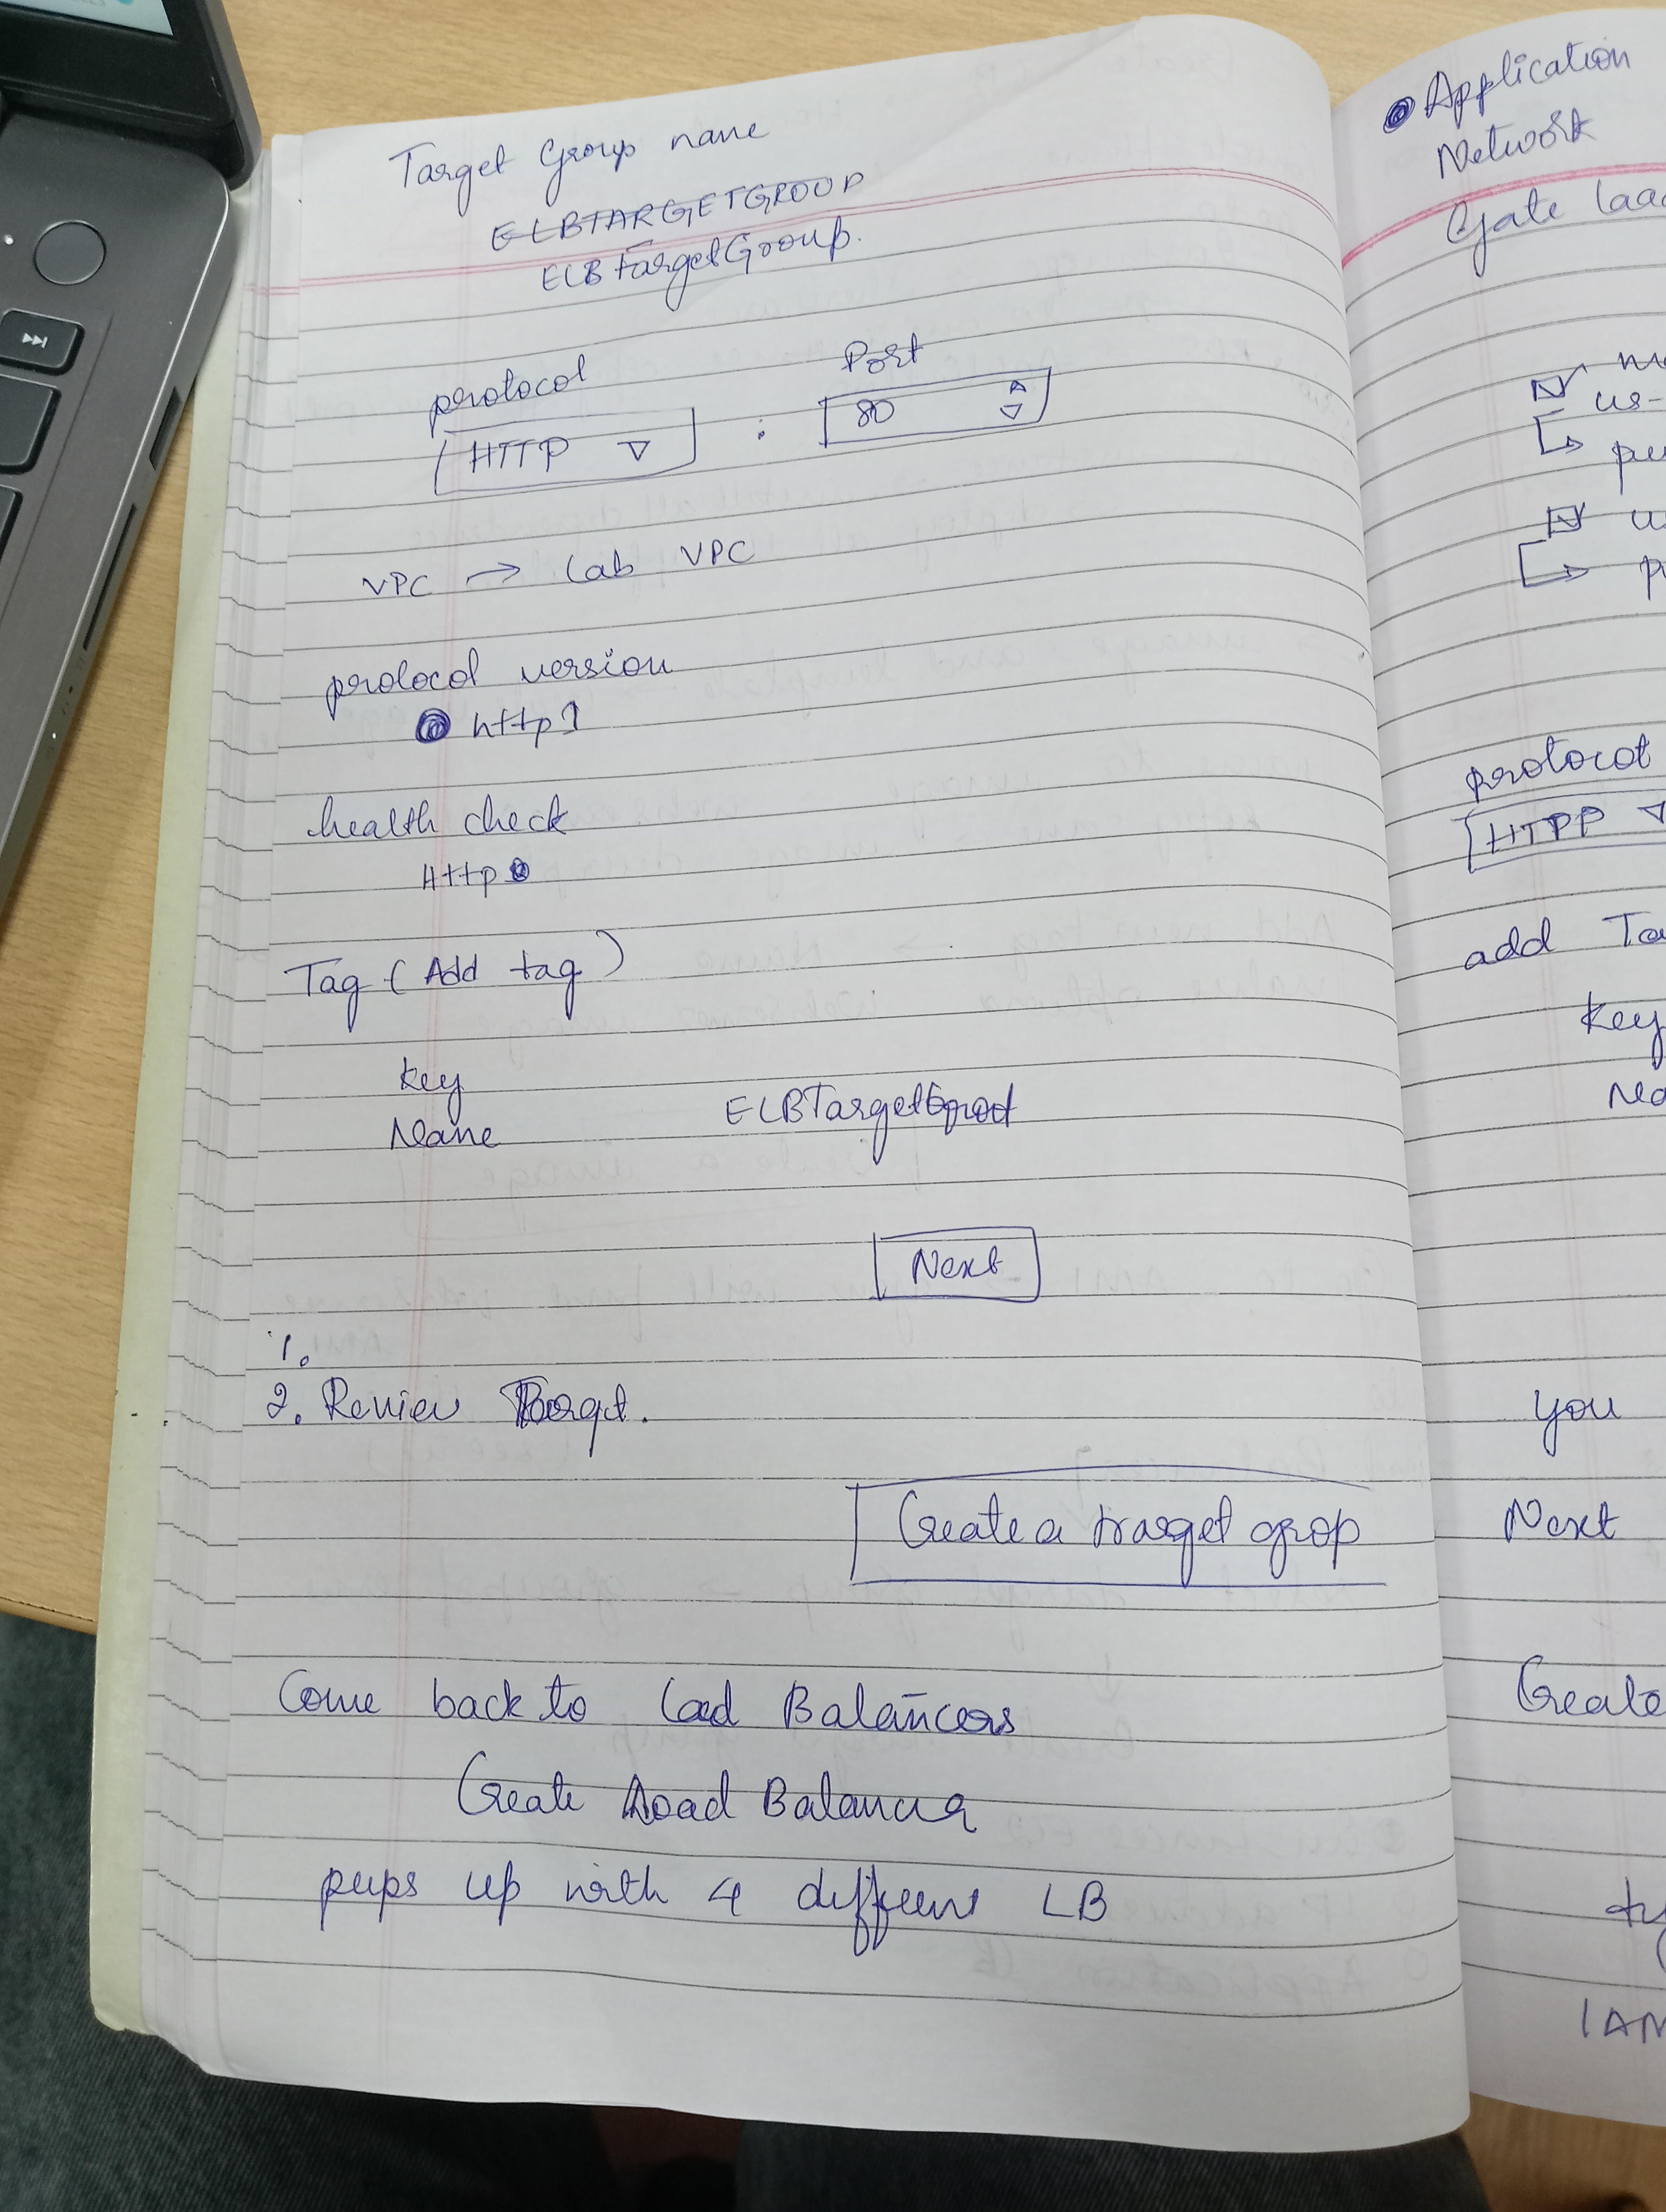 Target Group name
ELBTARGETGROUP
ELBTargetGroup.
protocol Port
HTTP : 80
VPC → Lab VPC
protocol version
http1
health check
Http
Tag (Add tag)
key
Name ELBTarget
Next
1.
2. Review Target.
Create a trarget grop
Come back to Load Balancers
Create Load Balancer
pups up with 4 different LB
Application
Network
Gate
us-
protocol
HTPP
add
key
you
Next
Create
IAM